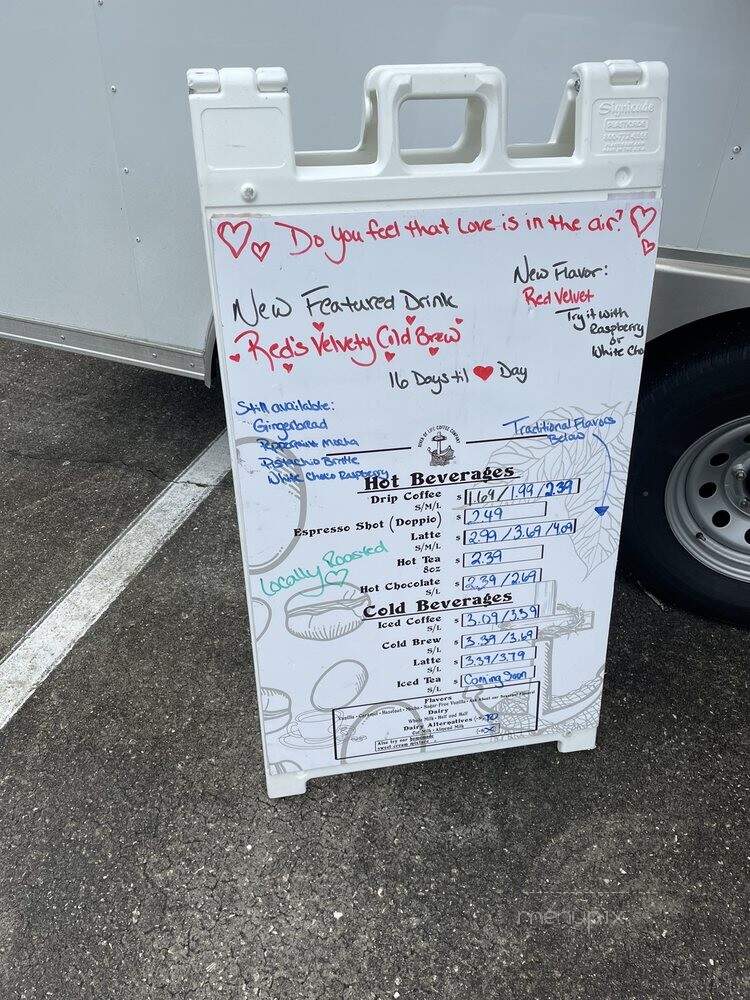 Signicade
Do you feel that Love is in the air?
New Flavor:
Red Velvet
Try it with
Raspberry
or
White Cho
New Featured Drink
Red's Velvety Cold Brew
16 Days til ♥ Day
Still available:
Gingerbread
Peppermint Mocha
Pistachio Brittle
White Choco Raspberry
RIVER OF LIFE COFFEE COMPANY
Traditional Flavors
Below
Hot Beverages
Drip Coffee $ 1.69/1.99/2.39
S/M/L
Espresso Shot (Doppio) $ 2.49
Latte $ 2.99/3.69/4.09
S/M/L
Hot Tea $ 2.39
8oz
Hot Chocolate $ 2.39/2.69
S/L
Locally Roasted
Cold Beverages
Iced Coffee $ 3.09/3.59
S/L
Cold Brew $ 3.39/3.69
S/L
Latte $ 3.39/3.79
S/L
Iced Tea $ Coming Soon
S/L
Flavors
Vanilla - Caramel - Hazelnut - Mocha - Sugar-Free Vanilla - Ask about our Seasonal Flavors!
Dairy
Whole Milk - Half and Half
Dairy Alternatives
Oat Milk - Almond Milk
Also try our homemade
sweet cream mixture
menupix